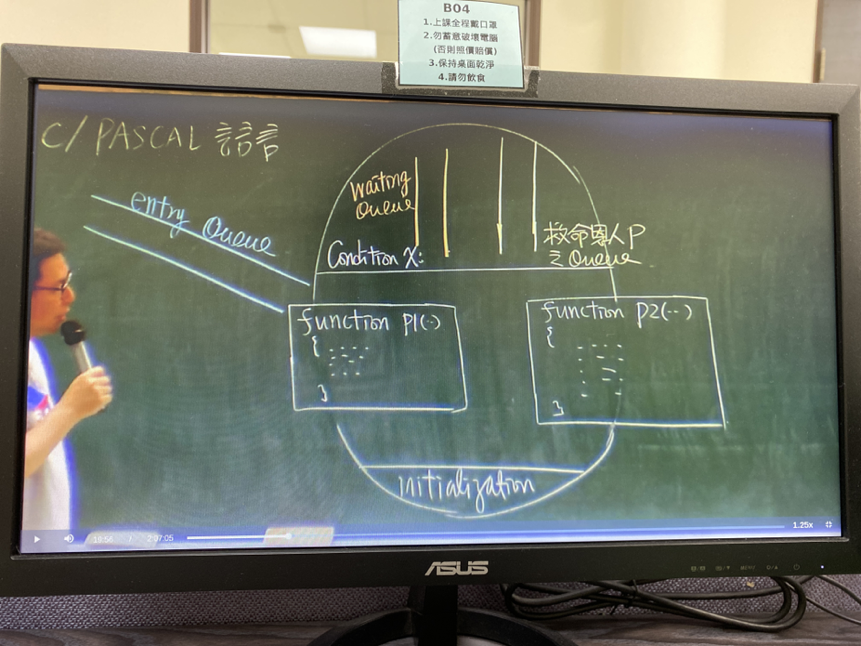 B04
1.上課全程戴口罩
2.勿蓄意破壞電腦
(否則照價賠償)
3.保持桌面乾淨
4.請勿飲食
C/PASCAL 語言
entry Queue
Waiting
Queue
Condition X:
救命恩人P
之Queue
function P1(..)
{
}
function P2(...)
{
}
initialization
2:07:05
1.25x
ASUS